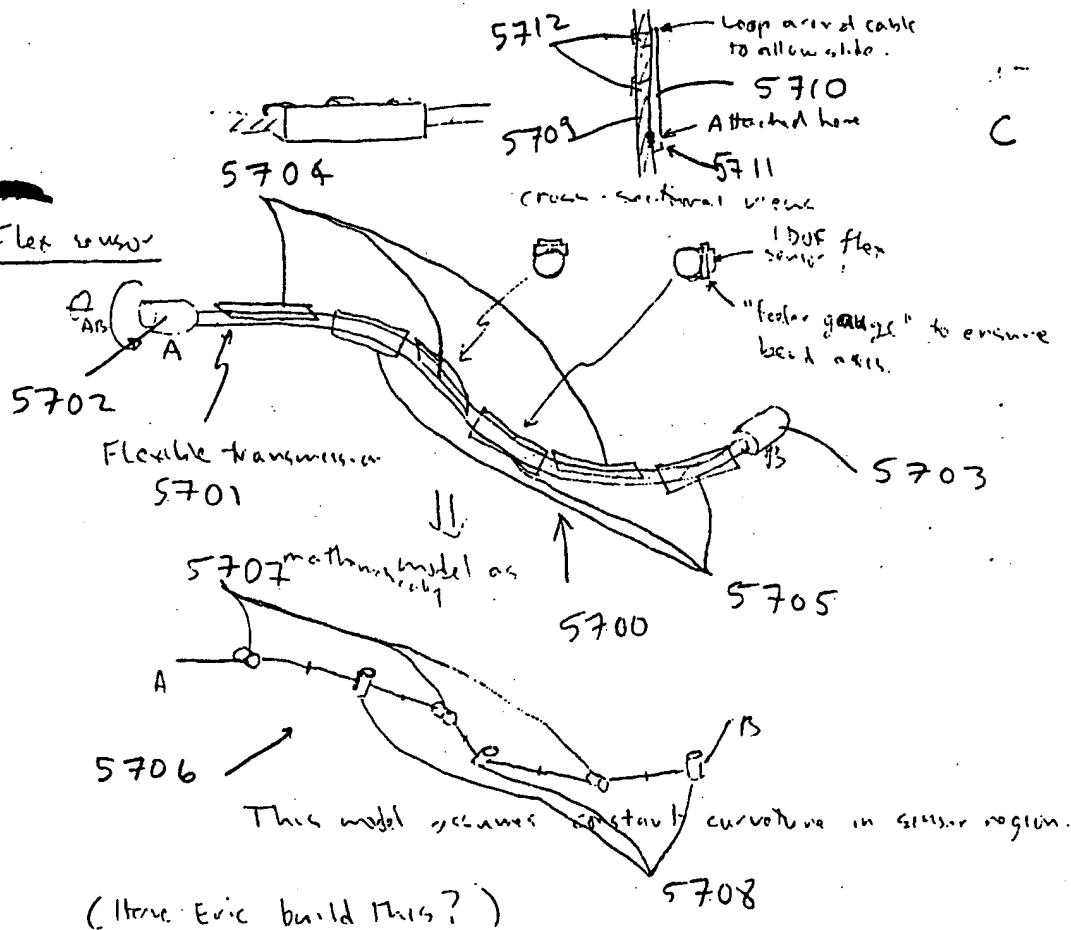 5712
Loop around cable
to allow slide.
5710
5709
Attached here
5711
C
5704
cross-sectional views
Flex sensor
1 DOF flex
sensor
"feeler gauge" to ensure
bend axis.
AB
A
5702
B
5703
Flexible transmission
5701
model as
5707
5705
5700
A
B
5706
This model assumes constant curvature in sensor region.
5708
(Have Eric build this?)